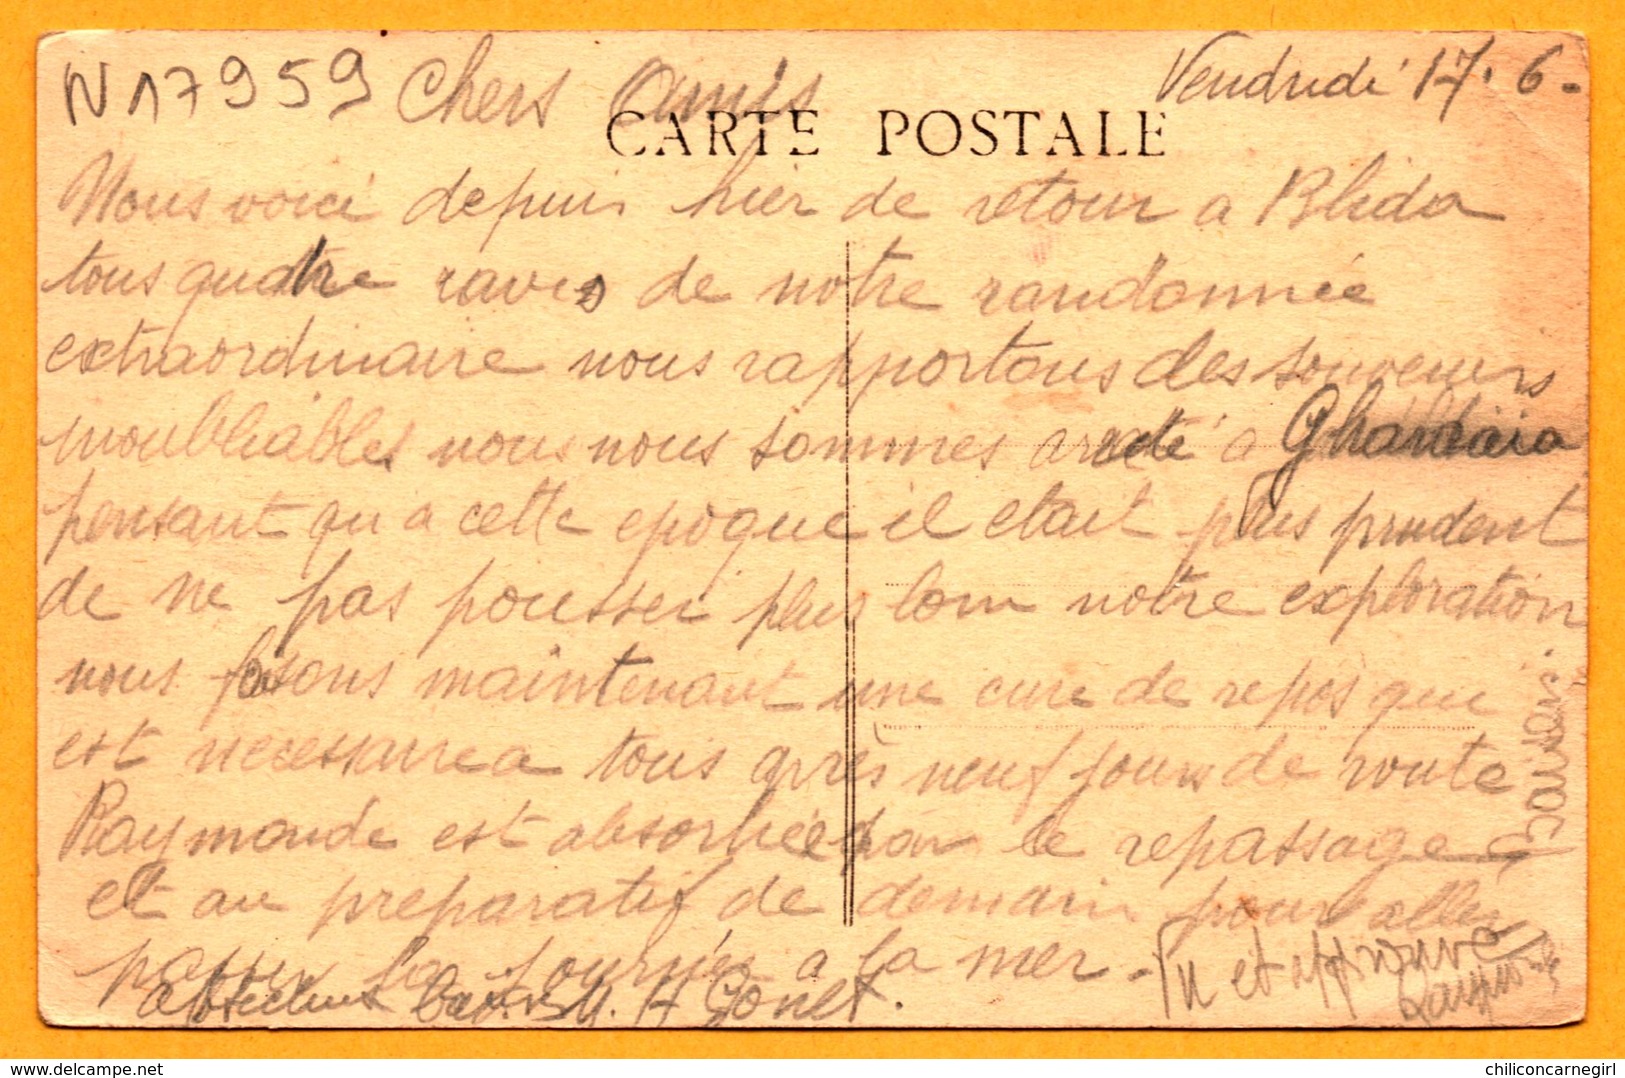 N 17959 Chers Amis
Vendredi 17.6-
CARTE POSTALE
Nous voici depuis hier de retour a Blida
tous quatre ravis de notre randonnée
extraordinaire nous rapportons des souvenirs
inoubliables nous nous sommes arreté a Ghardaia
pensant qu a cette epoque il etait plus prudent
de ne pas pousser plus loin notre exploration
nous faisons maintenant une cure de repos qui
est necessaire a tous après neuf jours de route
Raymonde est absorbée par le repassage
et au preparatif de demain pour aller
passer la journée a la mer -
affectueux M. H Gonet.
Baisers
Vu et approuvé
Raymonde
chiliconcarnegirl / delcampe.net
chiliconcarnegirl